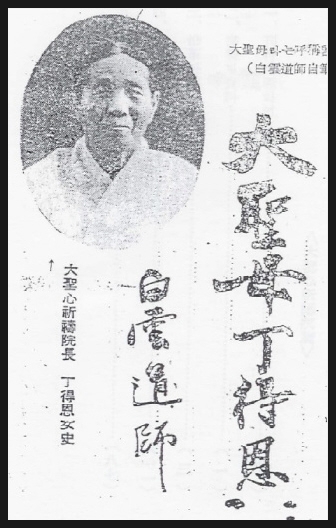 大聖母라는呼稱
(白雲道師自筆
大聖母丁得恩
白雲道師
大聖心祈禱院長 丁得恩女史